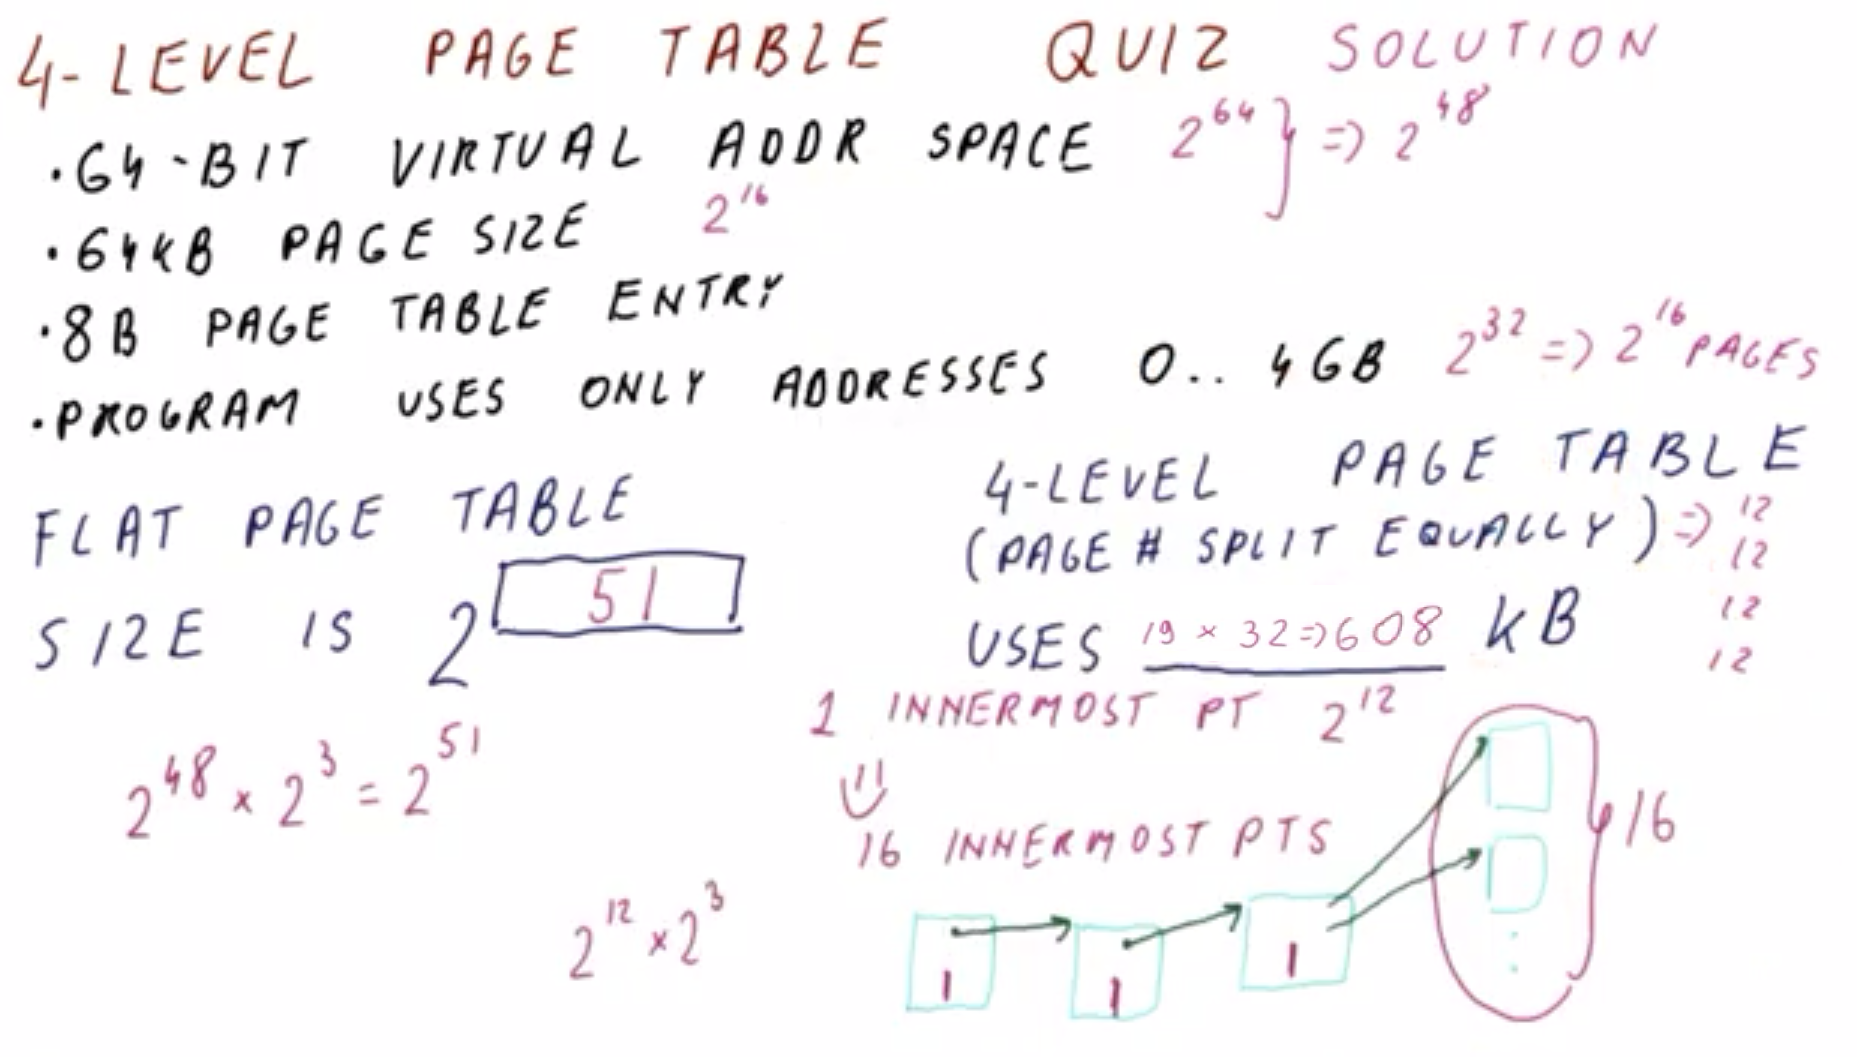 4-LEVEL PAGE TABLE QUIZ SOLUTION
·64-BIT VIRTUAL ADDR SPACE 2^64 } => 2^48
·64KB PAGE SIZE 2^16
·8B PAGE TABLE ENTRY
·PROGRAM USES ONLY ADDRESSES 0.. 4GB 2^32 => 2^16 PAGES
FLAT PAGE TABLE
SIZE IS 2^51
2^48 × 2^3 = 2^51
2^12 × 2^3
4-LEVEL PAGE TABLE
(PAGE # SPLIT EQUALLY) => 12
12
12
12
USES 19 × 32 => 608 KB
1 INNERMOST PT 2^12
16 INNERMOST PTS
1 1 1
16